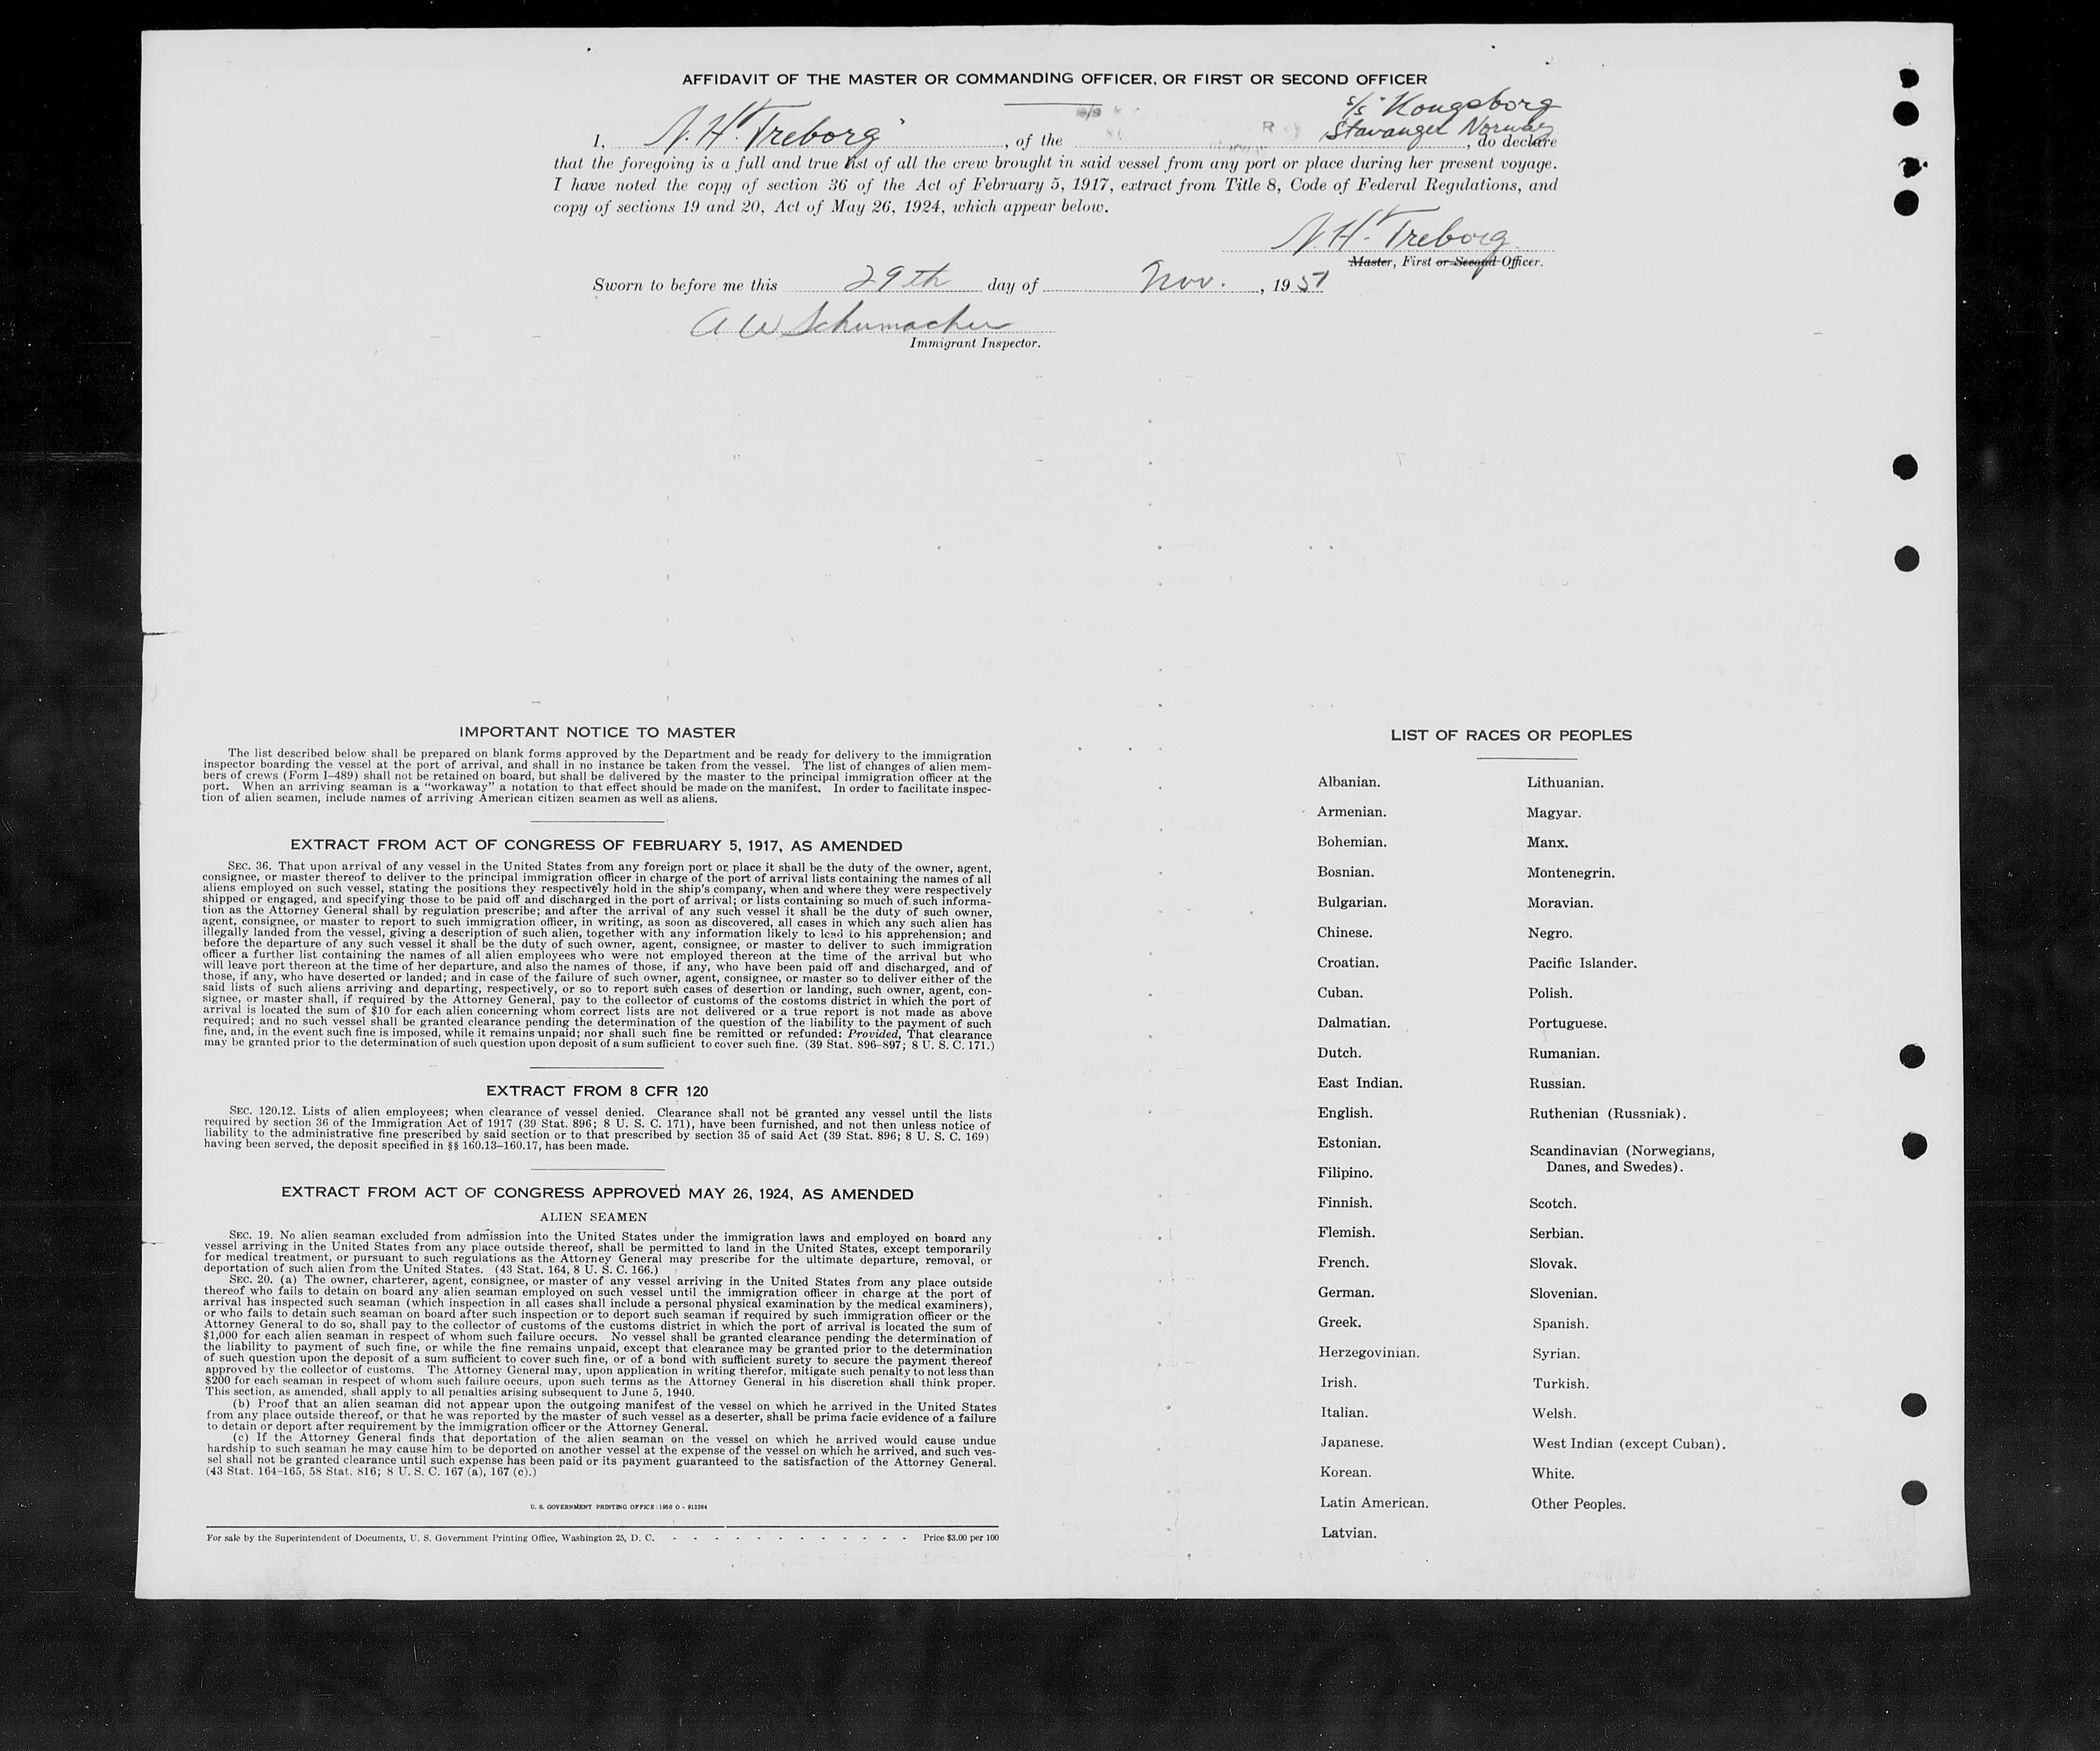 AFFIDAVIT OF THE MASTER OR COMMANDING OFFICER, OR FIRST OR SECOND OFFICER
s/s Kongsborg
Stavanger Norway
I, N. H. Treborg, of the , do declare
that the foregoing is a full and true list of all the crew brought in said vessel from any port or place during her present voyage.
I have noted the copy of section 36 of the Act of February 5, 1917, extract from Title 8, Code of Federal Regulations, and
copy of sections 19 and 20, Act of May 26, 1924, which appear below.
N. H. Treborg
Master, First or Second Officer.
Sworn to before me this 29th day of Nov., 1951
A W Schumacher
Immigrant Inspector.
IMPORTANT NOTICE TO MASTER
The list described below shall be prepared on blank forms approved by the Department and be ready for delivery to the immigration
inspector boarding the vessel at the port of arrival, and shall in no instance be taken from the vessel. The list of changes of alien mem-
bers of crews (Form I–489) shall not be retained on board, but shall be delivered by the master to the principal immigration officer at the
port. When an arriving seaman is a “workaway” a notation to that effect should be made on the manifest. In order to facilitate inspec-
tion of alien seamen, include names of arriving American citizen seamen as well as aliens.
EXTRACT FROM ACT OF CONGRESS OF FEBRUARY 5, 1917, AS AMENDED
SEC. 36. That upon arrival of any vessel in the United States from any foreign port or place it shall be the duty of the owner, agent,
consignee, or master thereof to deliver to the principal immigration officer in charge of the port of arrival lists containing the names of all
aliens employed on such vessel, stating the positions they respectively hold in the ship's company, when and where they were respectively
shipped or engaged, and specifying those to be paid off and discharged in the port of arrival; or lists containing so much of such informa-
tion as the Attorney General shall by regulation prescribe; and after the arrival of any such vessel it shall be the duty of such owner,
agent, consignee, or master to report to such immigration officer, in writing, as soon as discovered, all cases in which any such alien has
illegally landed from the vessel, giving a description of such alien, together with any information likely to lead to his apprehension; and
before the departure of any such vessel it shall be the duty of such owner, agent, consignee, or master to deliver to such immigration
officer a further list containing the names of all alien employees who were not employed thereon at the time of the arrival but who
will leave port thereon at the time of her departure, and also the names of those, if any, who have been paid off and discharged, and of
those, if any, who have deserted or landed; and in case of the failure of such owner, agent, consignee, or master so to deliver either of the
said lists of such aliens arriving and departing, respectively, or so to report such cases of desertion or landing, such owner, agent, con-
signee, or master shall, if required by the Attorney General, pay to the collector of customs of the costoms district in which the port of
arrival is located the sum of $10 for each alien concerning whom correct lists are not delivered or a true report is not made as above
required; and no such vessel shall be granted clearance pending the determination of the question of the liability to the payment of such
fine, and, in the event such fine is imposed, while it remains unpaid; nor shall such fine be remitted or refunded: Provided, That clearance
may be granted prior to the determination of such question upon deposit of a sum sufficient to cover such fine. (39 Stat. 896–897; 8 U. S. C. 171.)
EXTRACT FROM 8 CFR 120
SEC. 120.12. Lists of alien employees; when clearance of vessel denied. Clearance shall not be granted any vessel until the lists
required by section 36 of the Immigration Act of 1917 (39 Stat. 896; 8 U. S. C. 171), have been furnished, and not then unless notice of
liability to the administrative fine prescribed by said section or to that prescribed by section 35 of said Act (39 Stat. 896; 8 U. S. C. 169)
having been served, the deposit specified in §§ 160.13–160.17, has been made.
EXTRACT FROM ACT OF CONGRESS APPROVED MAY 26, 1924, AS AMENDED
ALIEN SEAMEN
SEC. 19. No alien seaman excluded from admission into the United States under the immigration laws and employed on board any
vessel arriving in the United States from any place outside thereof, shall be permitted to land in the United States, except temporarily
for medical treatment, or pursuant to such regulations as the Attorney General may prescribe for the ultimate departure, removal, or
deportation of such alien from the United States. (43 Stat. 164, 8 U. S. C. 166.)
SEC. 20. (a) The owner, charterer, agent, consignee, or master of any vessel arriving in the United States from any place outside
thereof who fails to detain on board any alien seaman employed on such vessel until the immigration officer in charge at the port of
arrival has inspected such seaman (which inspection in all cases shall include a personal physical examination by the medical examiners),
or who fails to detain such seaman on board after such inspection or to deport such seaman if required by such immigration officer or the
Attorney General to do so, shall pay to the collector of customs of the customs district in which the port of arrival is located the sum of
$1,000 for each alien seaman in respect of whom such failure occurs. No vessel shall be granted clearance pending the determination of
the liability to payment of such fine, or while the fine remains unpaid, except that clearance may be granted prior to the determination
of such question upon the deposit of a sum sufficient to cover such fine, or of a bond with sufficient surety to secure the payment thereof
approved by the collector of customs. The Attorney General may, upon application in writing therefor, mitigate such penalty to not less than
$200 for each seaman in respect of whom such failure occurs, upon such terms as the Attorney General in his discretion shall think proper.
This section, as amended, shall apply to all penalties arising subsequent to June 5, 1940.
(b) Proof that an alien seaman did not appear upon the outgoing manifest of the vessel on which he arrived in the United States
from any place outside thereof, or that he was reported by the master of such vessel as a deserter, shall be prima facie evidence of a failure
to detain or deport after requirement by the immigration officer or the Attorney General.
(c) If the Attorney General finds that deportation of the alien seaman on the vessel on which he arrived would cause undue
hardship to such seaman he may cause him to be deported on another vessel at the expense of the vessel on which he arrived, and such ves-
sel shall not be granted clearance until such expense has been paid or its payment guaranteed to the satisfaction of the Attorney General.
(43 Stat. 164–165, 58 Stat. 816; 8 U. S. C. 167 (a), 167 (c).)
U. S. GOVERNMENT PRINTING OFFICE : 1950 O - 913264
For sale by the Superintendent of Documents, U. S. Government Printing Office, Washington 25, D. C. - - - - - - - - - - - - Price $3.00 per 100
LIST OF RACES OR PEOPLES
Albanian.
Armenian.
Bohemian.
Bosnian.
Bulgarian.
Chinese.
Croatian.
Cuban.
Dalmatian.
Dutch.
East Indian.
English.
Estonian.
Filipino.
Finnish.
Flemish.
French.
German.
Greek.
Herzegovinian.
Irish.
Italian.
Japanese.
Korean.
Latin American.
Latvian.
Lithuanian.
Magyar.
Manx.
Montenegrin.
Moravian.
Negro.
Pacific Islander.
Polish.
Portuguese.
Rumanian.
Russian.
Ruthenian (Russniak).
Scandinavian (Norwegians,
Danes, and Swedes).
Scotch.
Serbian.
Slovak.
Slovenian.
Spanish.
Syrian.
Turkish.
Welsh.
West Indian (except Cuban).
White.
Other Peoples.